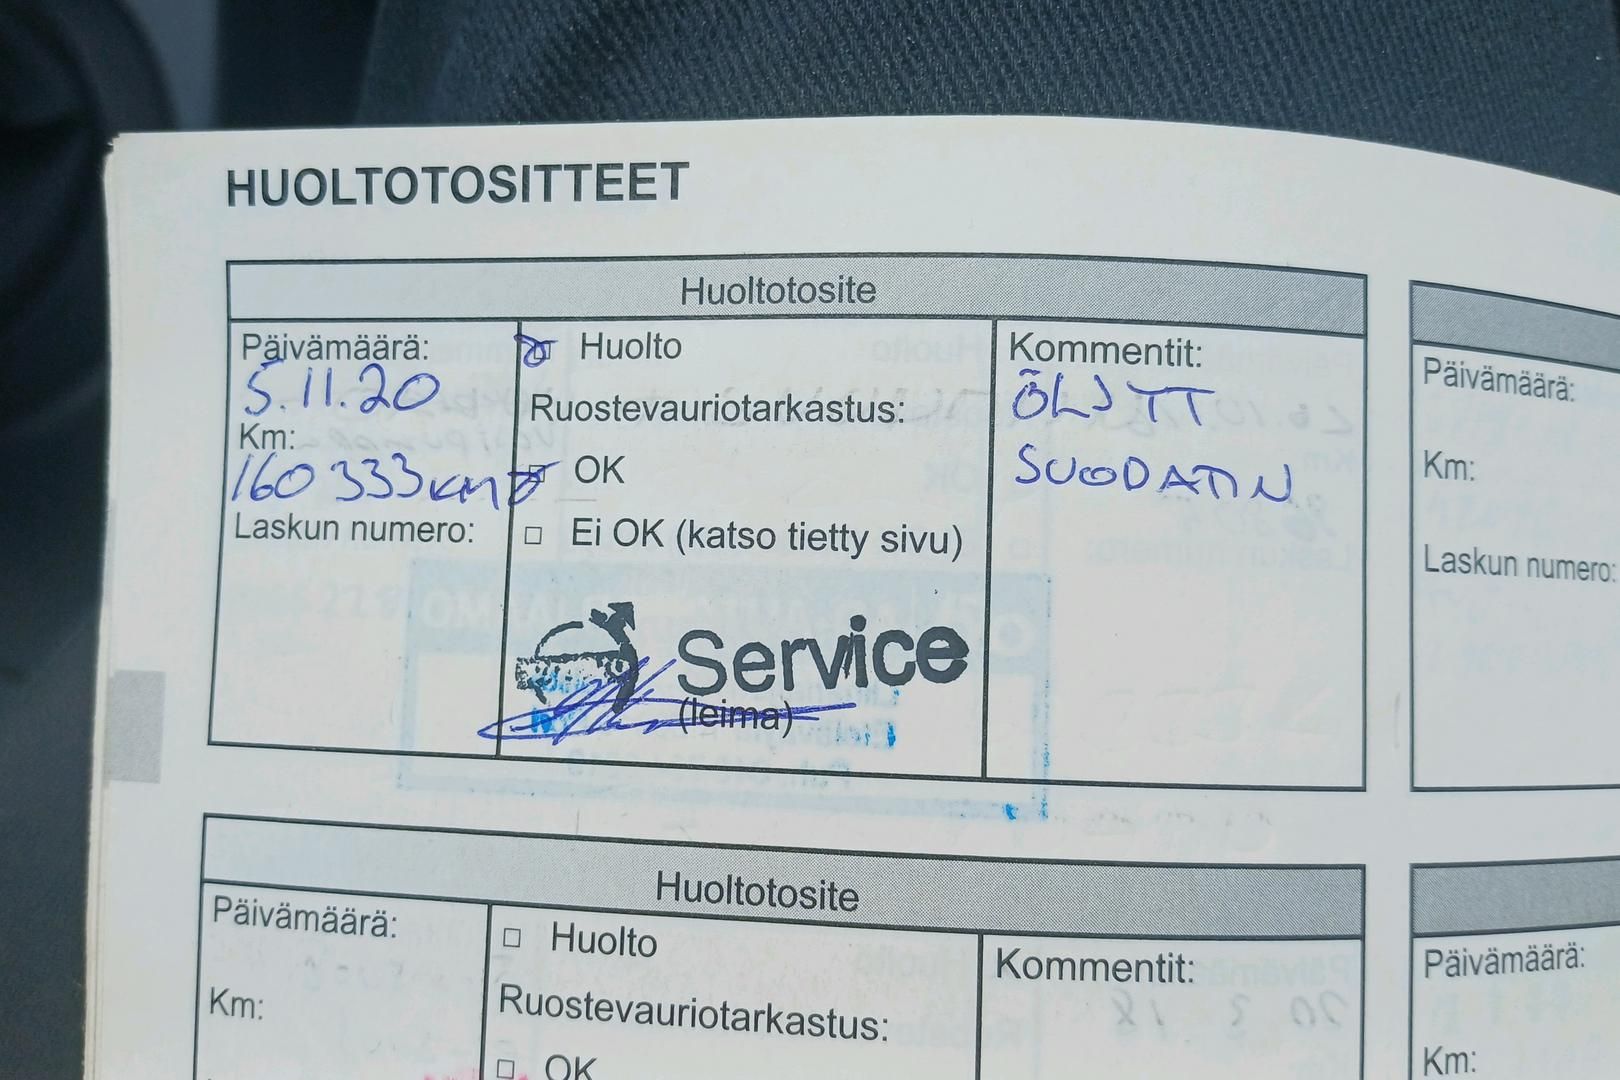 HUOLTOTOSITTEET
Huoltotosite
Päivämäärä:
5.11.20
Km:
160 333 KM
Laskun numero:
Huolto
Ruostevauriotarkastus:
OK
Ei OK (katso tietty sivu)
Service
(leima)
Kommentit:
ÖLJYT
SUODATIN
Päivämäärä:
Km:
Laskun numero:
Huoltotosite
Päivämäärä:
Km:
Huolto
Ruostevauriotarkastus:
OK
Kommentit:
Päivämäärä:
Km: